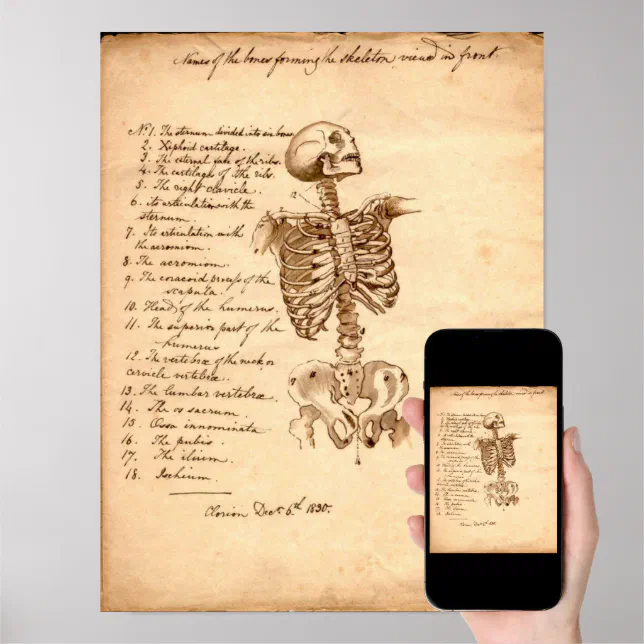 Names of the bones forming the skeleton, viewd in front.
No 1. The sternum divided into six bones
2. Xiphoid cartilage.
3. The external face of the ribs.
4. The cartilages of the ribs.
5. The right clavicle.
6. its articulation with the
sternum.
7. Its articulation with
the acromion.
8. The acromion.
9. The coracoid process of the
scapula.
10. Head of the humerus.
11. The superior part of the
humerus
12. The vertebræ of the neck or
cervicle vertebræ.
13. The lumbar vertebræ.
14. The os sacrum.
15. Ossa innominata
16. The pubis.
17. The ilium.
18. Ischium.
12
Clorion Decr. 6th 1830.